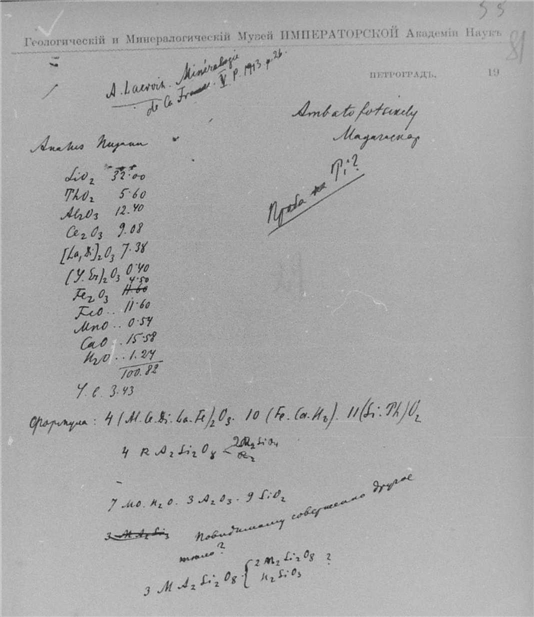 55
81
Геологическій и Минералогическій Музей ИМПЕРАТОРСКОЙ Академіи Наукъ
ПЕТРОГРАДЪ, 19
A. Lacroix. Minéralogie
de la France. V. p. 1913. p. 26.
Ambatofotsikely
Мадагаскар
Проба на Ti?
SiO2 32.00
ThO2 5.60
Al2O3 12.40
Ce2O3 9.08
[La, Di]2O3 7.38
(Y. Er)2O3 0.40
4.50
Fe2O3 11.60
FeO .. 11.60
MnO .. 0.54
CaO .. 15.58
H2O .. 1.24
100.82
У. в. 3.43
Формула: 4 (Al. Ce. Di. La. Fe)2O3. 10 (Fe. Ca. H2). 11 (Si. Th)O2
4 R A2Si2O8
7 MO. H2O. 3 A2O3. 9 SiO2
3 M A2Si2 Повидимому совершенно другое
3 M A2Si2O8. { 2 M2Si2O8 ?
H2SiO3